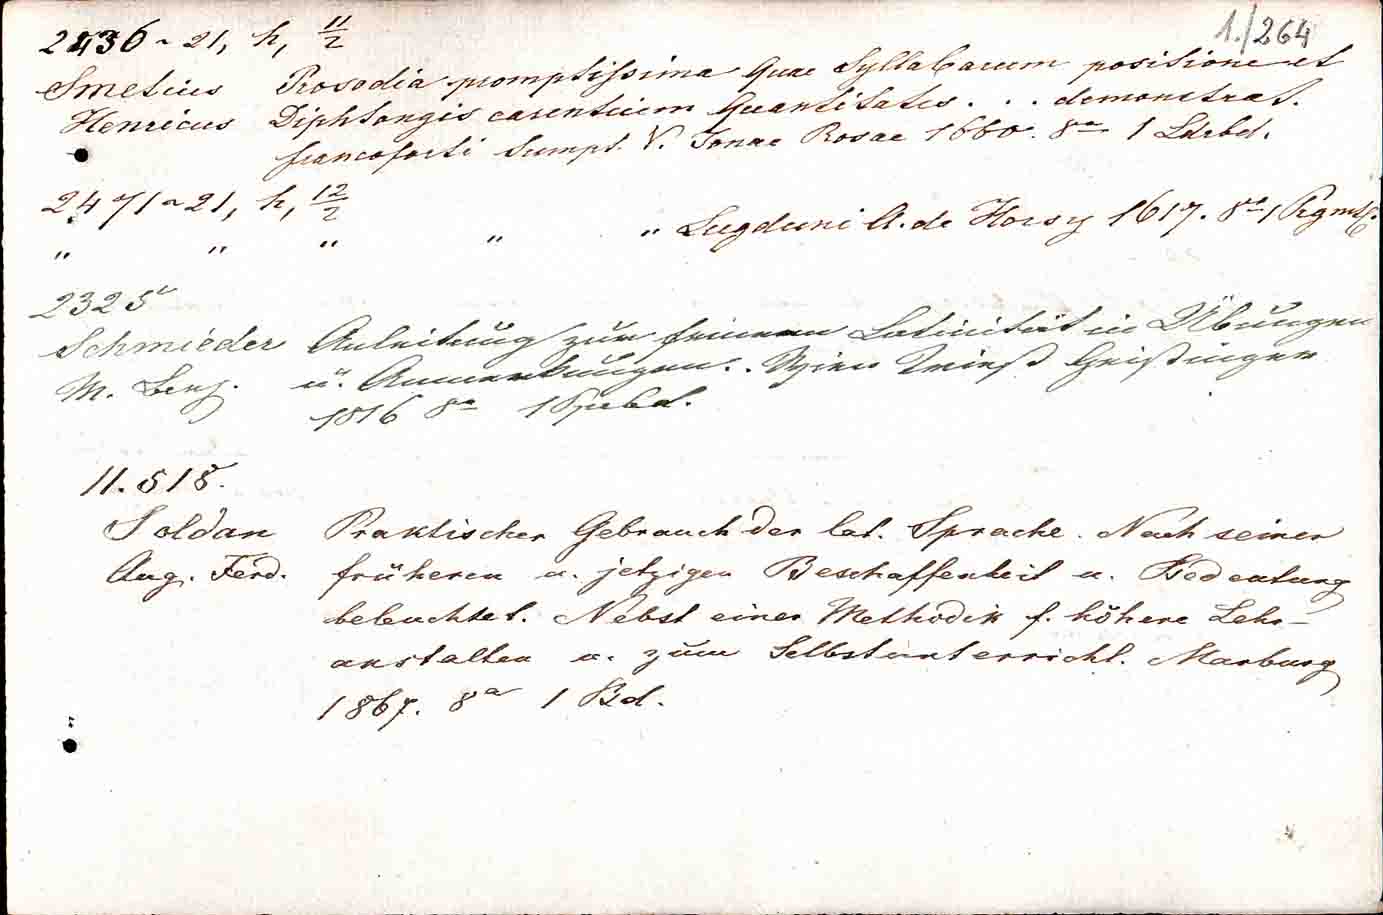 1./264
2436 ~ 21, h, 11/2
Smetius Prosodia promptissima Quae Syllabarum positione et
Henricus Diphtongis carentium Quantitates . . . demonstrat.
francoforti Sumpt. V. Jonae Rosae 1660. 8° 1 Ldrbd.
2471 ~ 21, h, 12/2
" " " " " Lugduni A. de Harsy 1617. 8° 1 Prgmtb.
2325
Schmieder Anleitung zur feineren Latinität in Übungen
M. Benj. u. Anmerkungen.
1816 8° 1 Ppbd.
11.518.
Soldan Praktischer Gebrauch der lat. Sprache. Nach seiner
Aug. Ferd. früheren u. jetzigen Beschaffenheit u. Bedeutung
beleuchtet. Nebst einer Methodik f. höhere Lehr-
anstalten u. zum Selbstunterricht. Marburg
1867. 8° 1 Bd.